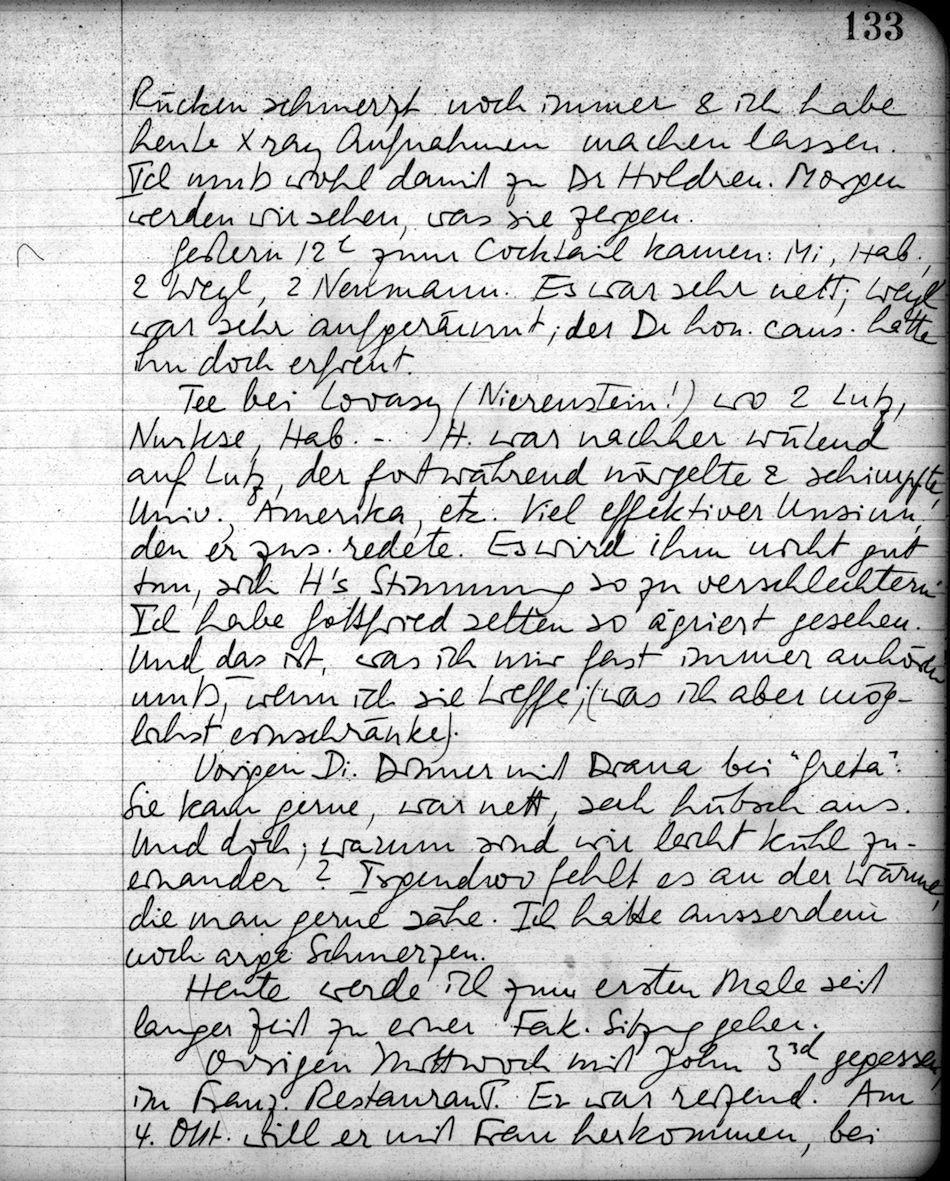 133
Rücken schmerzt noch immer & ich habe
heute X ray Aufnahmen machen lassen.
Ich muß wohl damit zu Dr Holdren. Morgen
werden wir sehen, was sie zeigen.
Gestern 12h zum Cocktail kamen: Mi, Hab.,
2 Weyl, 2 Neumann. Es war sehr nett; Weyl
war sehr aufgeräumt; der Dr hon. caus. hatte
ihn doch erfreut.
Tee bei Lovasy (Nierenstein!) wo 2 Lutz,
Nurkse, Hab. – H. war nachher wütend
auf Lutz, der fortwährend nörgelte & schimpfte,
Univ., Amerika, etc. Viel effektiver Unsinn,
den er zus. redete. Es wird ihm nicht gut
tun, sich H's Stimmung so zu verschlechtern.
Ich habe Gottfried selten so agriert gesehen.
Und das ist, was ich mir fast immer anhören
muß, wenn ich sie treffe; (was ich aber mög-
lichst einschränke).
Vorigen Di. Dinner mit Diana bei "Greta".
Sie kam gerne, war nett, sah hübsch aus.
Und doch; warum sind wir leicht kühl zu-
einander? Irgendwo fehlt es an der Wärme,
die man gerne sähe. Ich hatte ausserdem
noch arge Schmerzen.
Heute werde ich zum ersten Male seit
langer Zeit zu einer Fak. Sitzung gehen.
Vorigen Mittwoch mit John 3rd gegessen,
im Franz. Restaurant. Er war reizend. Am
4. Okt. will er mit Frau herkommen, bei